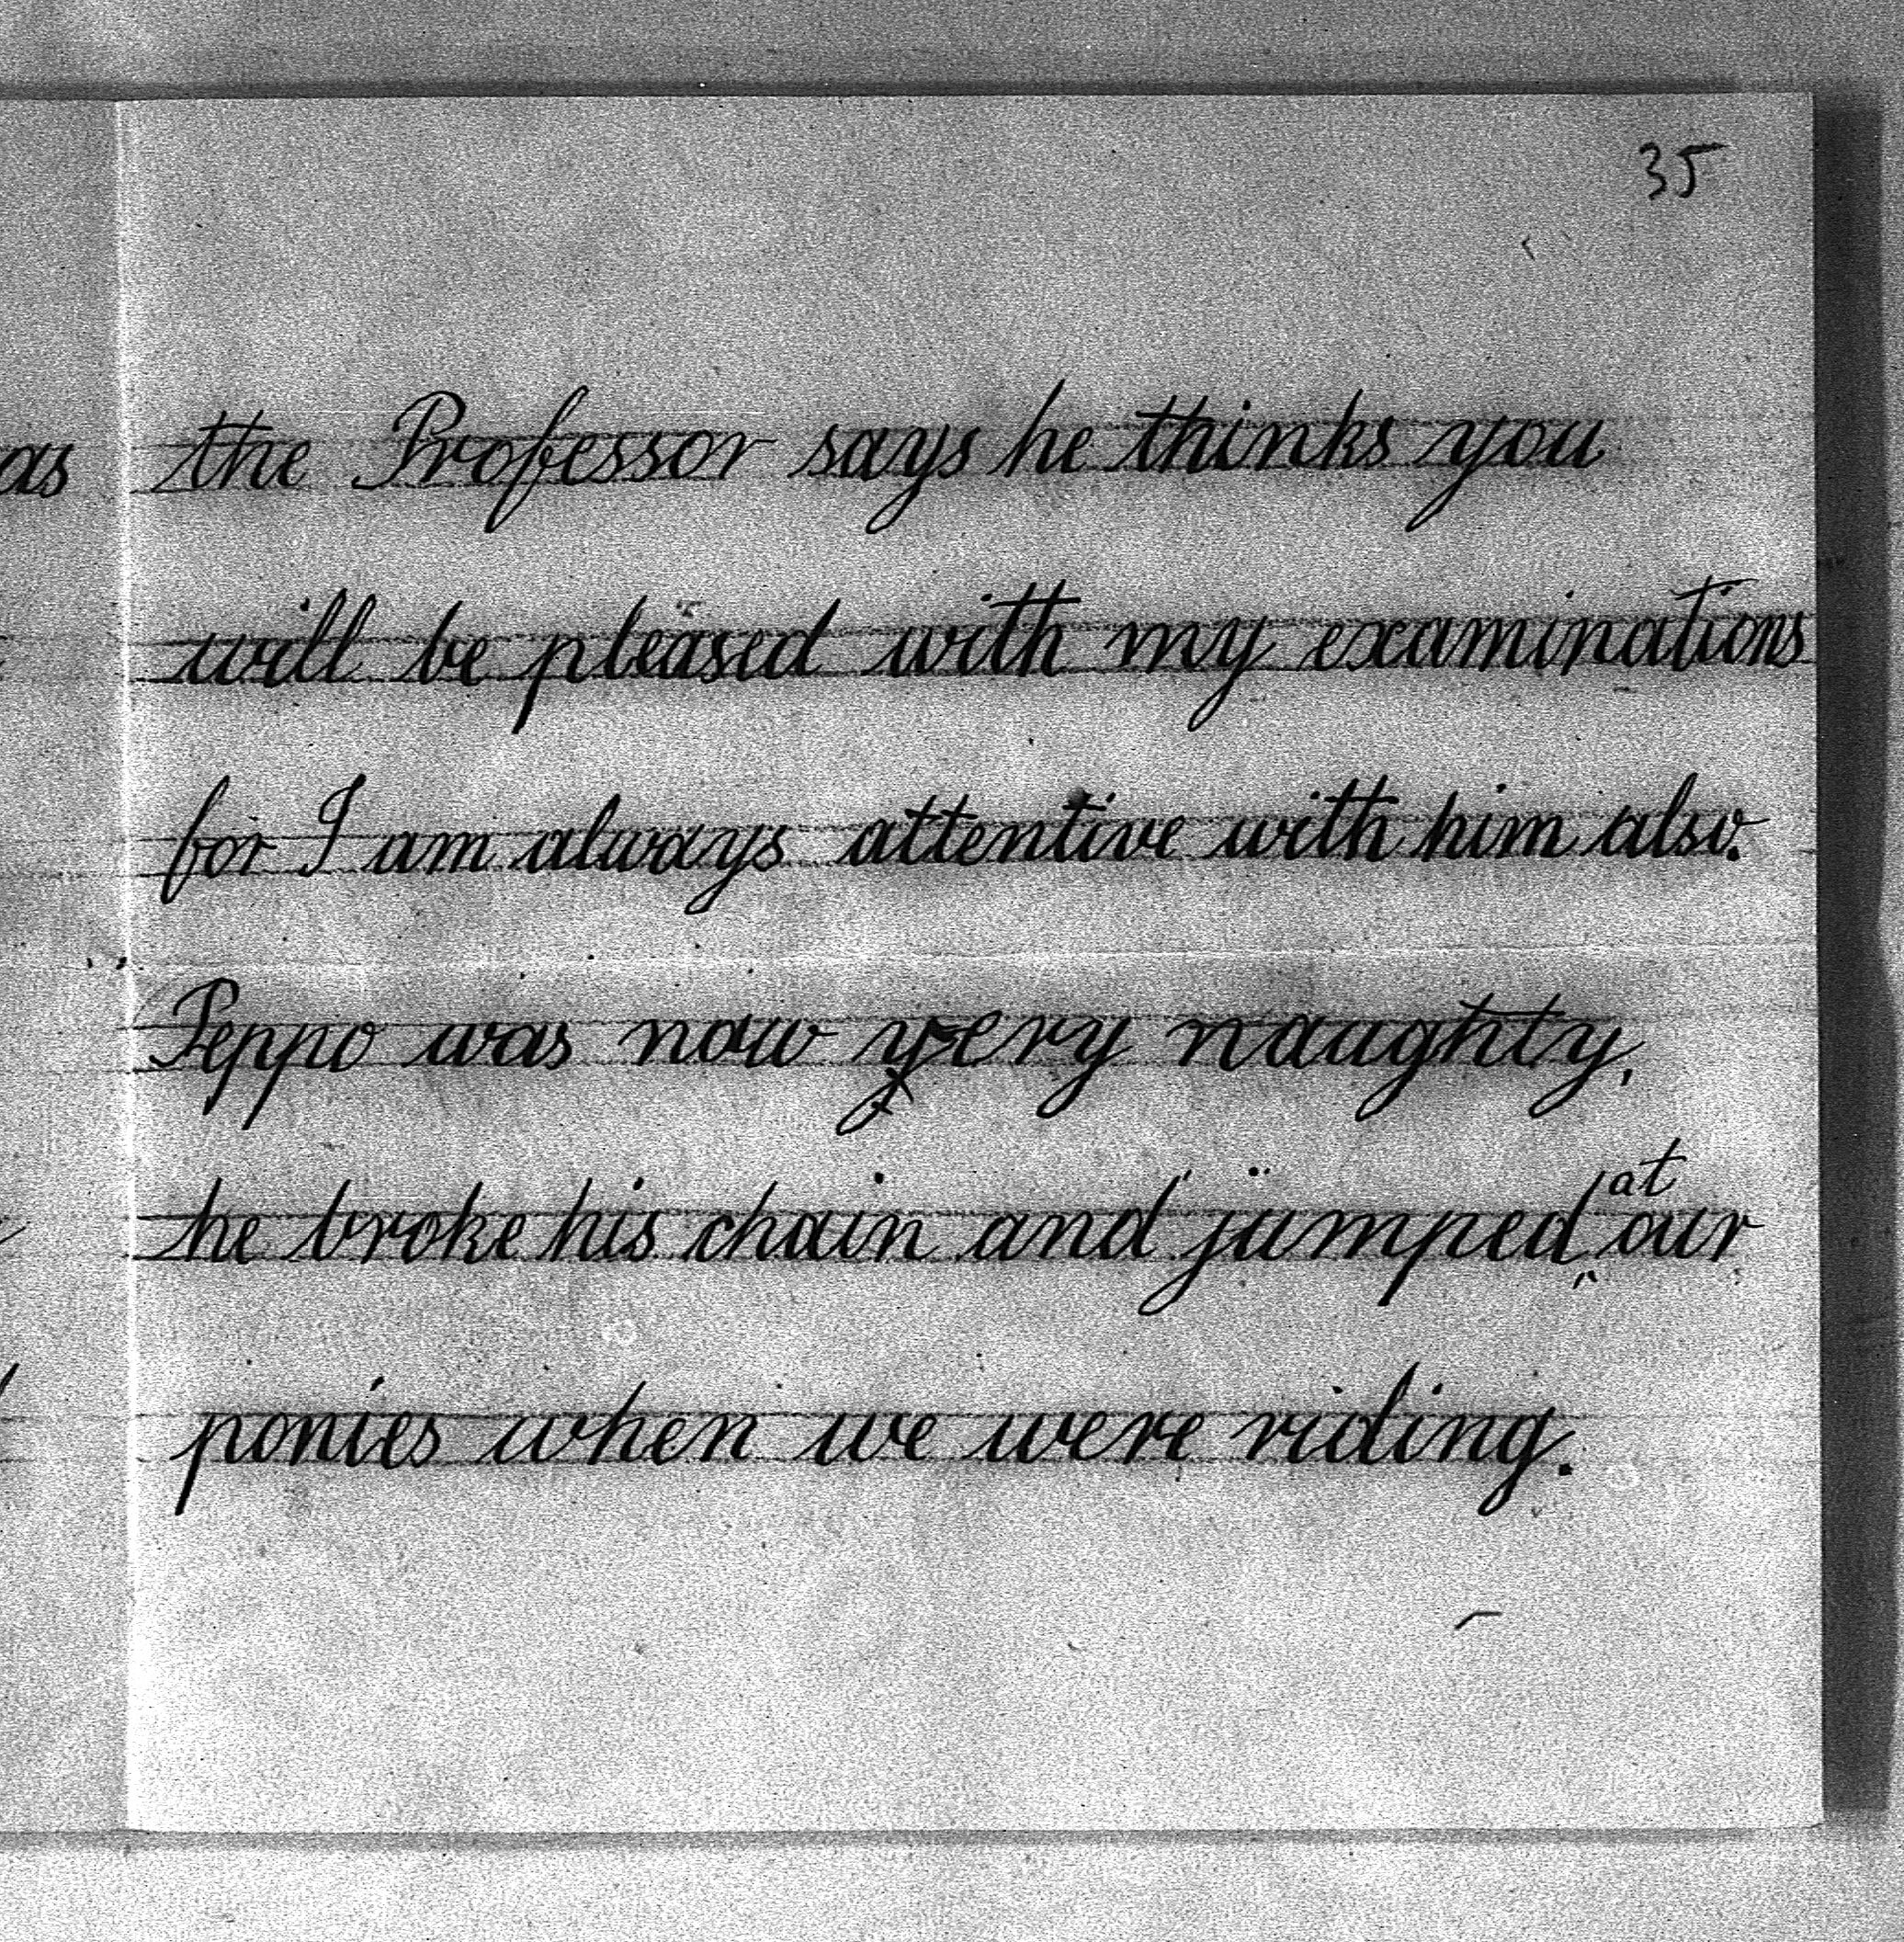 35
as the Professor says he thinks you
will be pleased with my examinations
for I am always attentive with him also.
Peppo was now very naughty,
he broke his chain and jumped at our
ponies when we were riding.